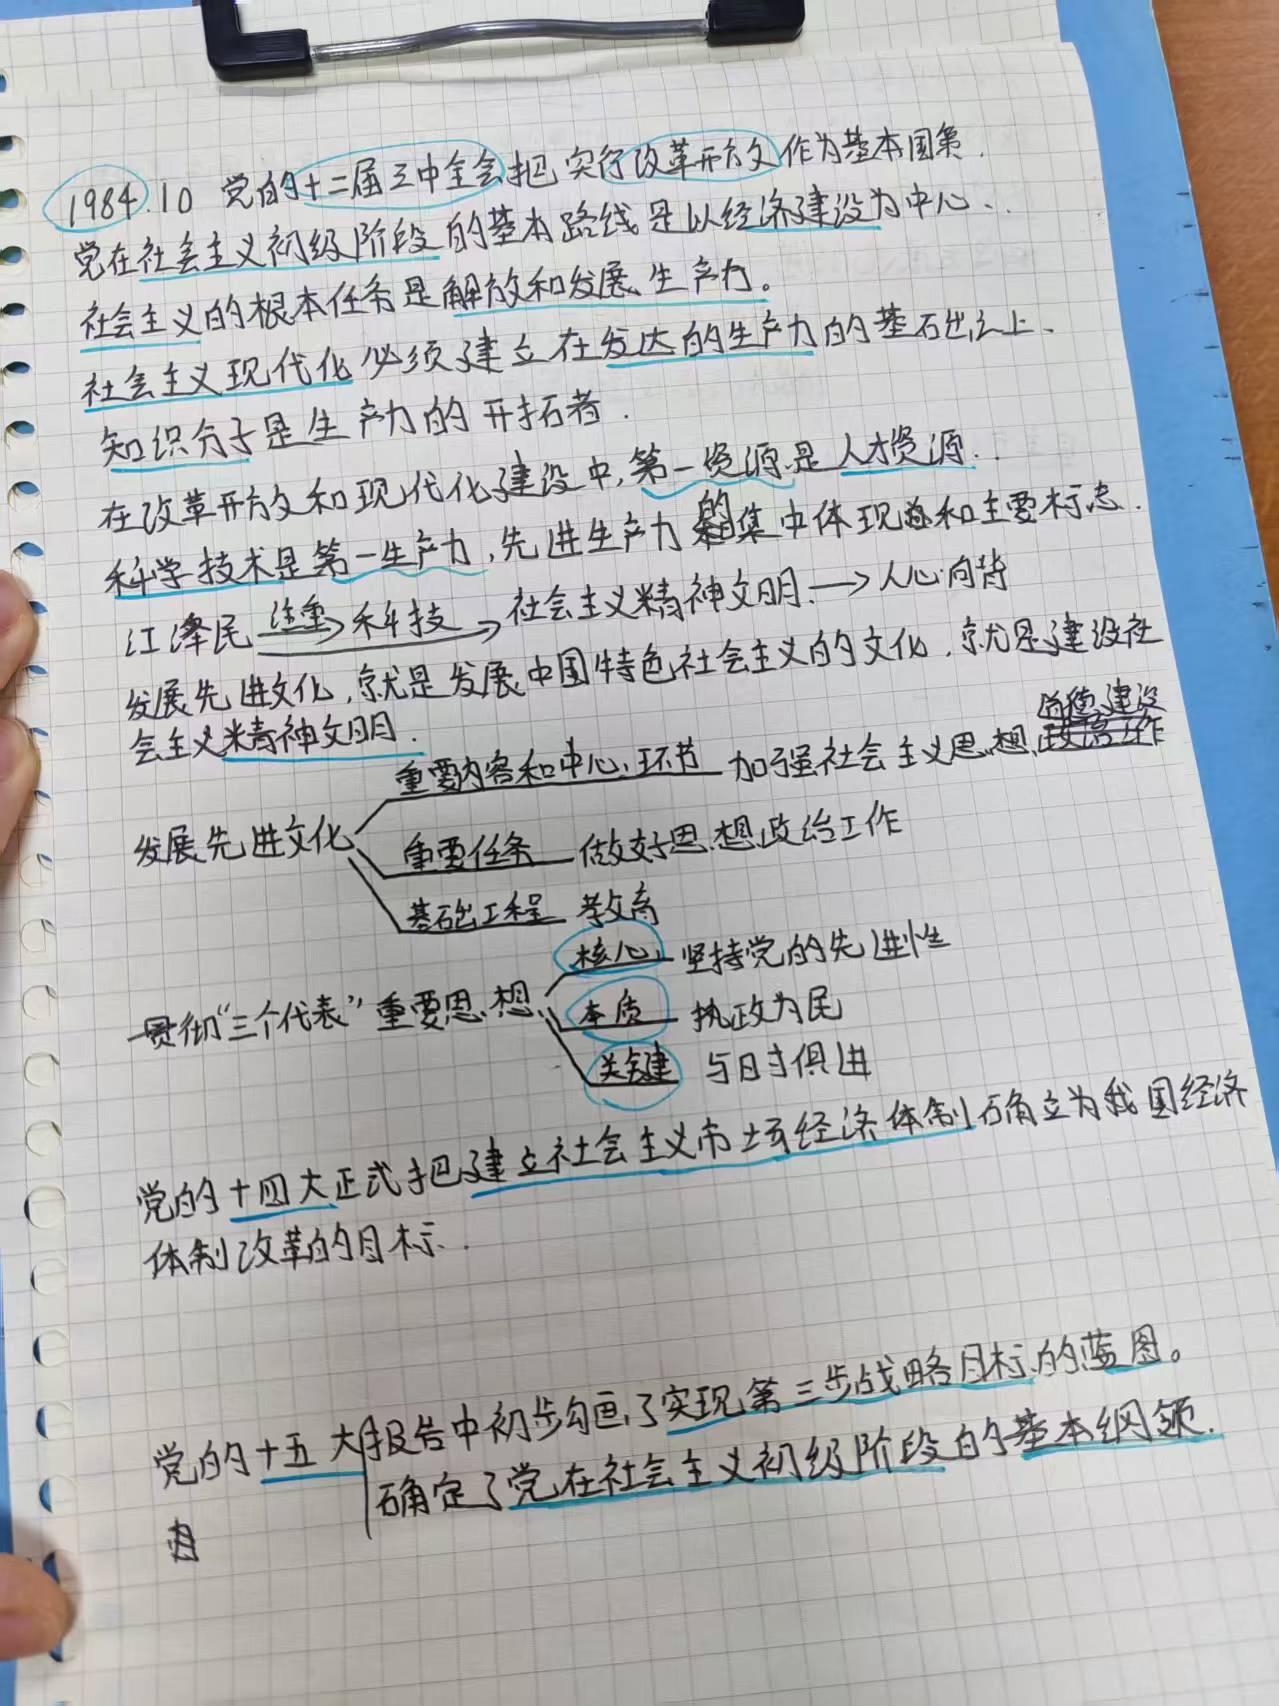 1984.10 党的十二届三中全会把实行改革开放作为基本国策.
党在社会主义初级阶段的基本路线是以经济建设为中心、
社会主义的根本任务是解放和发展生产力。
社会主义现代化必须建立在发达的生产力的基础之上、
知识分子是生产力的开拓者.
在改革开放和现代化建设中,第一资源是人才资源.
科学技术是第一生产力,先进生产力的集中体现和主要标志.
江泽民 注重→科技→社会主义精神文明→人心向背
发展先进文化,就是发展中国特色社会主义的文化,就是建设社
会主义精神文明.
发展先进文化
重要内容和中心环节 加强社会主义思想道德建设
重要任务 做好思想政治工作
基础工程 教育
贯彻“三个代表”重要思想
核心 坚持党的先进性
本质 执政为民
关键 与时俱进
党的十四大正式把建立社会主义市场经济体制确立为我国经济
体制改革的目标.
党的十五大 报告中初步勾画了实现第三步战略目标的蓝图。
确定了党在社会主义初级阶段的基本纲领.